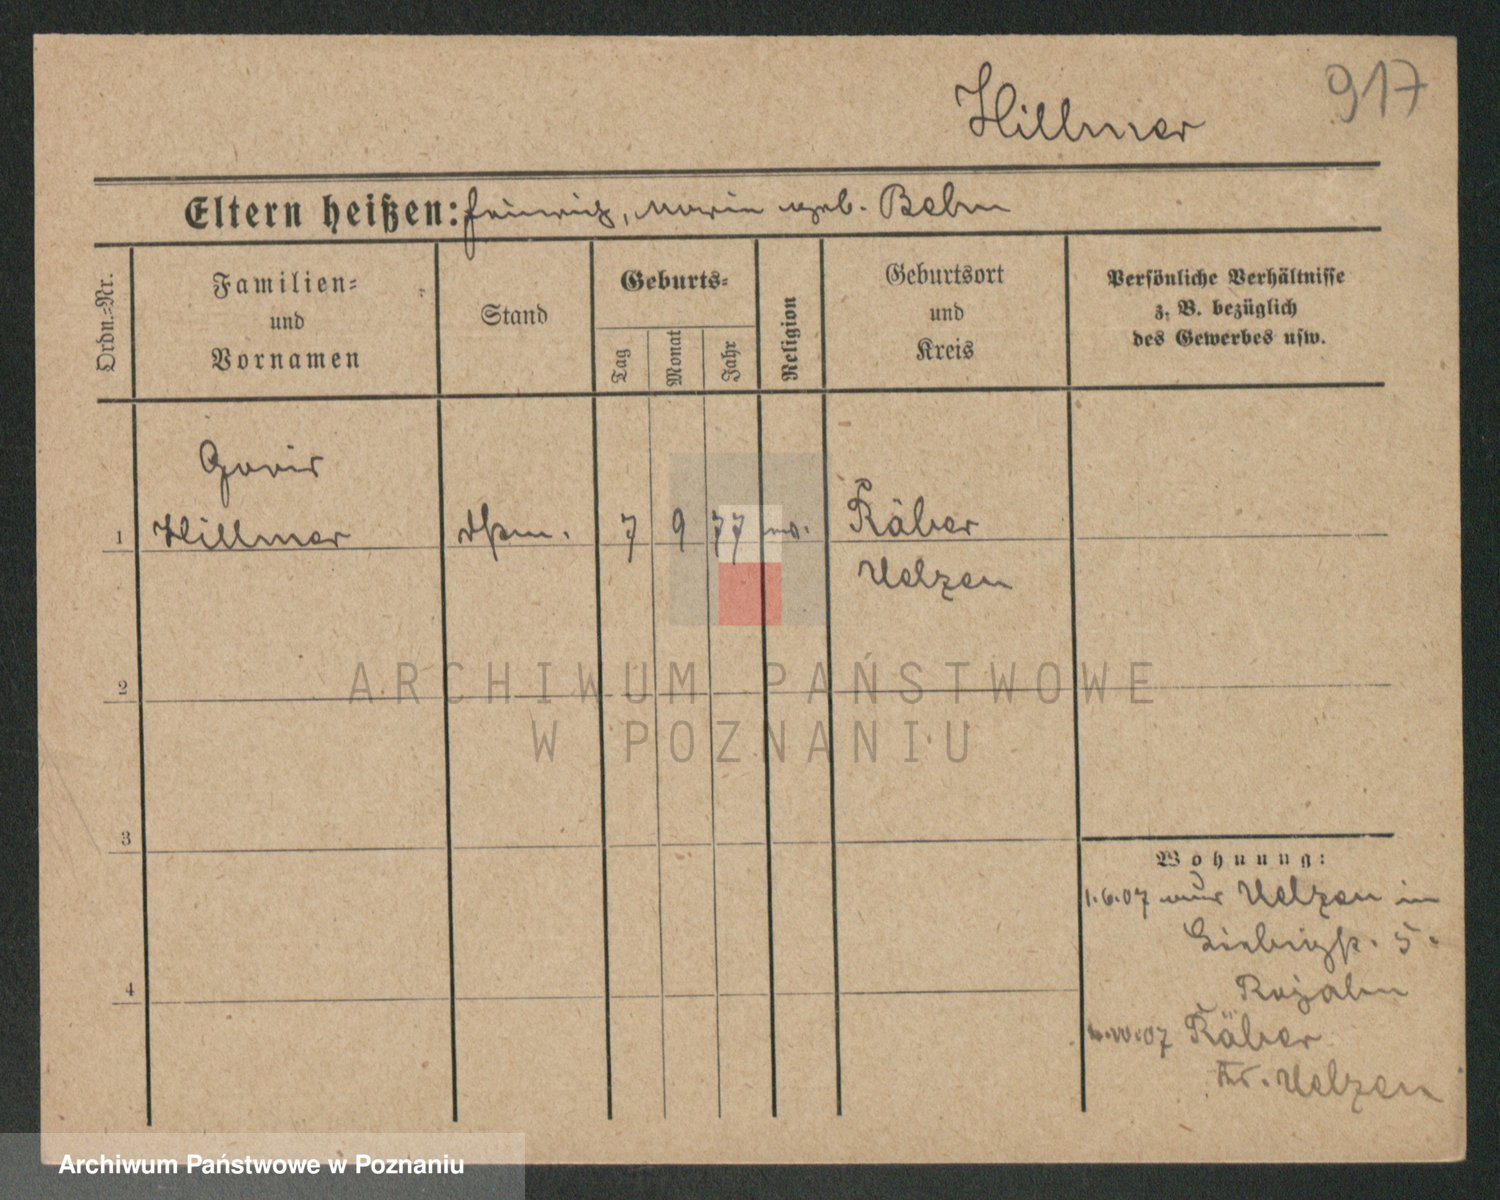 Hillmer
917
Eltern heißen: Heinrich, Marie geb. Behn
Ordn.=Nr.
Familien=
und
Vornamen
Stand
Geburts=
Tag
Monat
Jahr
Religion
Geburtsort
und
Kreis
Persönliche Verhältnisse
z. B. bezüglich
des Gewerbes usw.
1
Hillmer
7
9
77
Räber
Uelzen
2
ARCHIWUM PAŃSTWOWE
W POZNANIU
3
Wohnung:
1.6.07 Uelzen in
5.
4
07 Räber
Kr. Uelzen
Archiwum Państwowe w Poznaniu